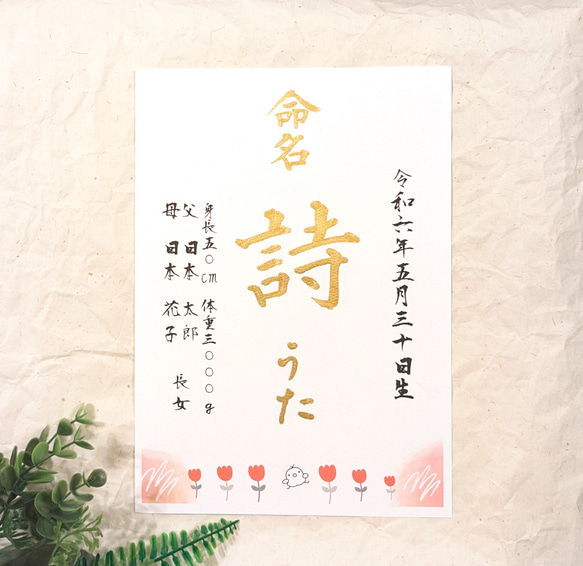 令和六年五月三十日生
命名
詩
うた
身長五〇cm 体重三〇〇〇g
父 日本 太郎
母 日本 花子
長女